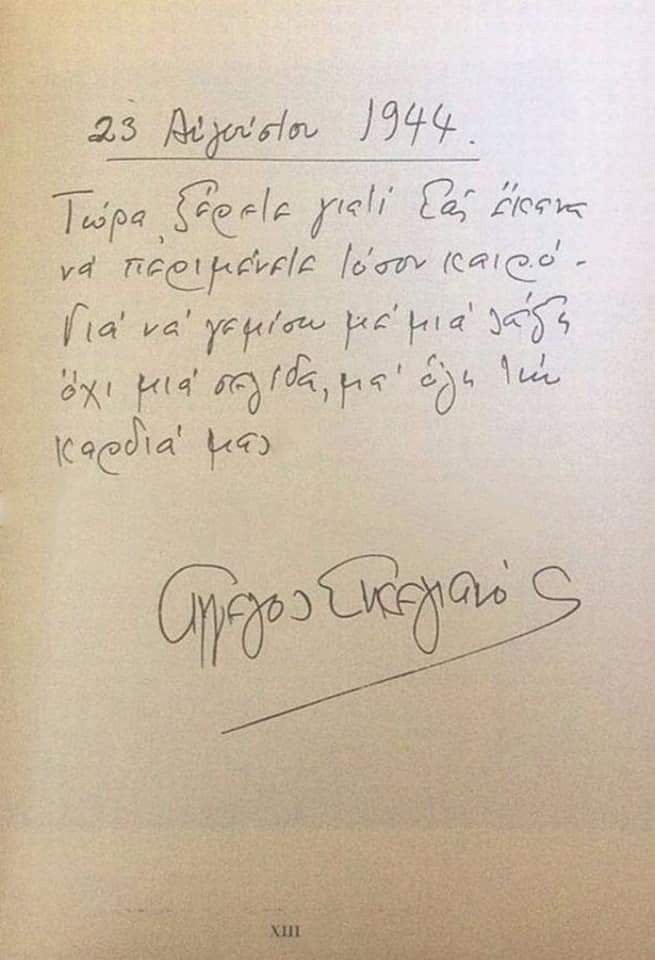 23 Αὐγούστου 1944.
Τώρα, ξέρετε γιατί Σᾶς ἔκανα
νά περιμένετε τόσον καιρό -
Γιά νά γεμίσω μέ μιά λέξη
ὄχι μιά σελίδα, μά ὅλη τήν
καρδιά μας
Άγγελος Σικελιανός
XIII